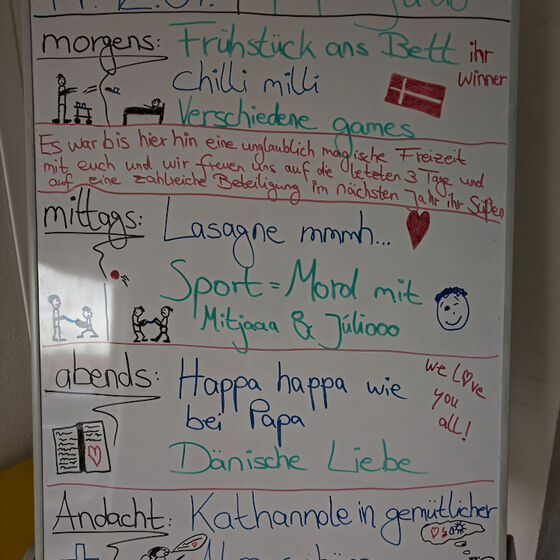 morgens: Frühstück ans Bett ihr
winner
chilli milli
Verschiedene games
Es war bis hier hin eine unglaublich magische Freizeit
mit euch und wir freuen uns auf die letzten 3 Tage und
auf eine zahlreiche Beteiligung im nächsten Jahr ihr Süßen
mittags: Lasagne mmmh...
Sport = Mord mit
Mitjaaa & Júliooo
abends: Happa happa wie
bei Papa
we love
you
all!
Dänische Liebe
Andacht: Kathannole in gemütlicher